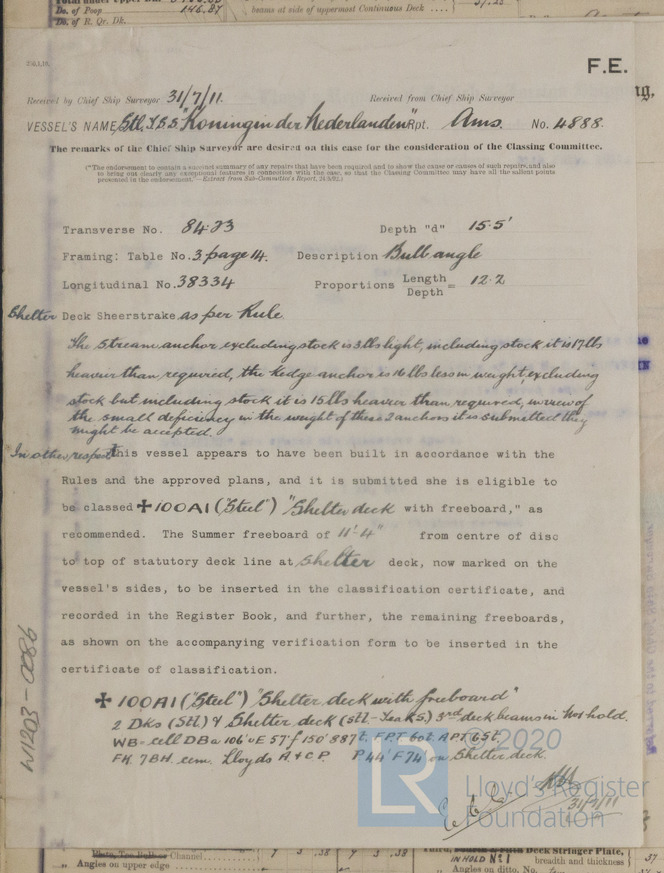 Do. of Poop 146.87 beams at side of uppermost Continuous Deck
Do. of R. Qr. Dk.
F.E.
Received by Chief Ship Surveyor 31/7/11. Received from Chief Ship Surveyor
VESSEL'S NAME Stl. T.S.S. "Koningin der Nederlanden" Rpt. Ams. No. 4888.
The remarks of the Chief Ship Surveyor are desired on this case for the consideration of the Classing Committee.
("The endorsement to contain a succinct summary of any repairs that have been required and to show the cause or causes of such repairs, and also
to bring out clearly any exceptional features in connection with the case, so that the Classing Committee may have all the salient points
presented in the endorsement."—Extract from Sub-Committee's Report,
Transverse No. 84.23 Depth "d" 15.5'
Framing: Table No. 3 page 14. Description Bulb angle
Longitudinal No. 38334 Proportions Length / Depth = 12.2
Shelter Deck Sheerstrake as per Rule.
The Stream anchor excluding stock is 3 lbs light, including stock it is 17 lbs
heavier than required, the kedge anchor is 16 lbs less in weight, excluding
stock but including stock it is 15 lbs heavier than required, in view of
the small deficiency in the weight of these 2 anchors it is submitted they
might be accepted.
In other respects this vessel appears to have been built in accordance with the
Rules and the approved plans, and it is submitted she is eligible to
be classed ✠100A1 ("Steel") "Shelter deck with freeboard," as
recommended. The Summer freeboard of 11'-4" from centre of disc
to top of statutory deck line at Shelter deck, now marked on the
vessel's sides, to be inserted in the classification certificate, and
recorded in the Register Book, and further, the remaining freeboards,
as shown on the accompanying verification form to be inserted in the
certificate of classification.
✠ 100A1 ("Steel") "Shelter deck with freeboard"
2 Dks (Stl) & Shelter deck (Stl-Teak S.) 3rd deck beams in No1 hold.
WB = cell DBa 106' uE 57' f 150' 887t. FPT 60t. APT 65t.
FK. 7BH. cem. Lloyds A & C P. P 44' F 74' on Shelter deck.
31/7/11
W1203-0086
© 2020
LR
Lloyd's Register
Foundation
Channel 7 3 .38 7 3 .38 Deck Stringer Plate,
„ Angles on upper edge IN HOLD No 1 breadth and thickness 37
„ Angles on ditto, No.